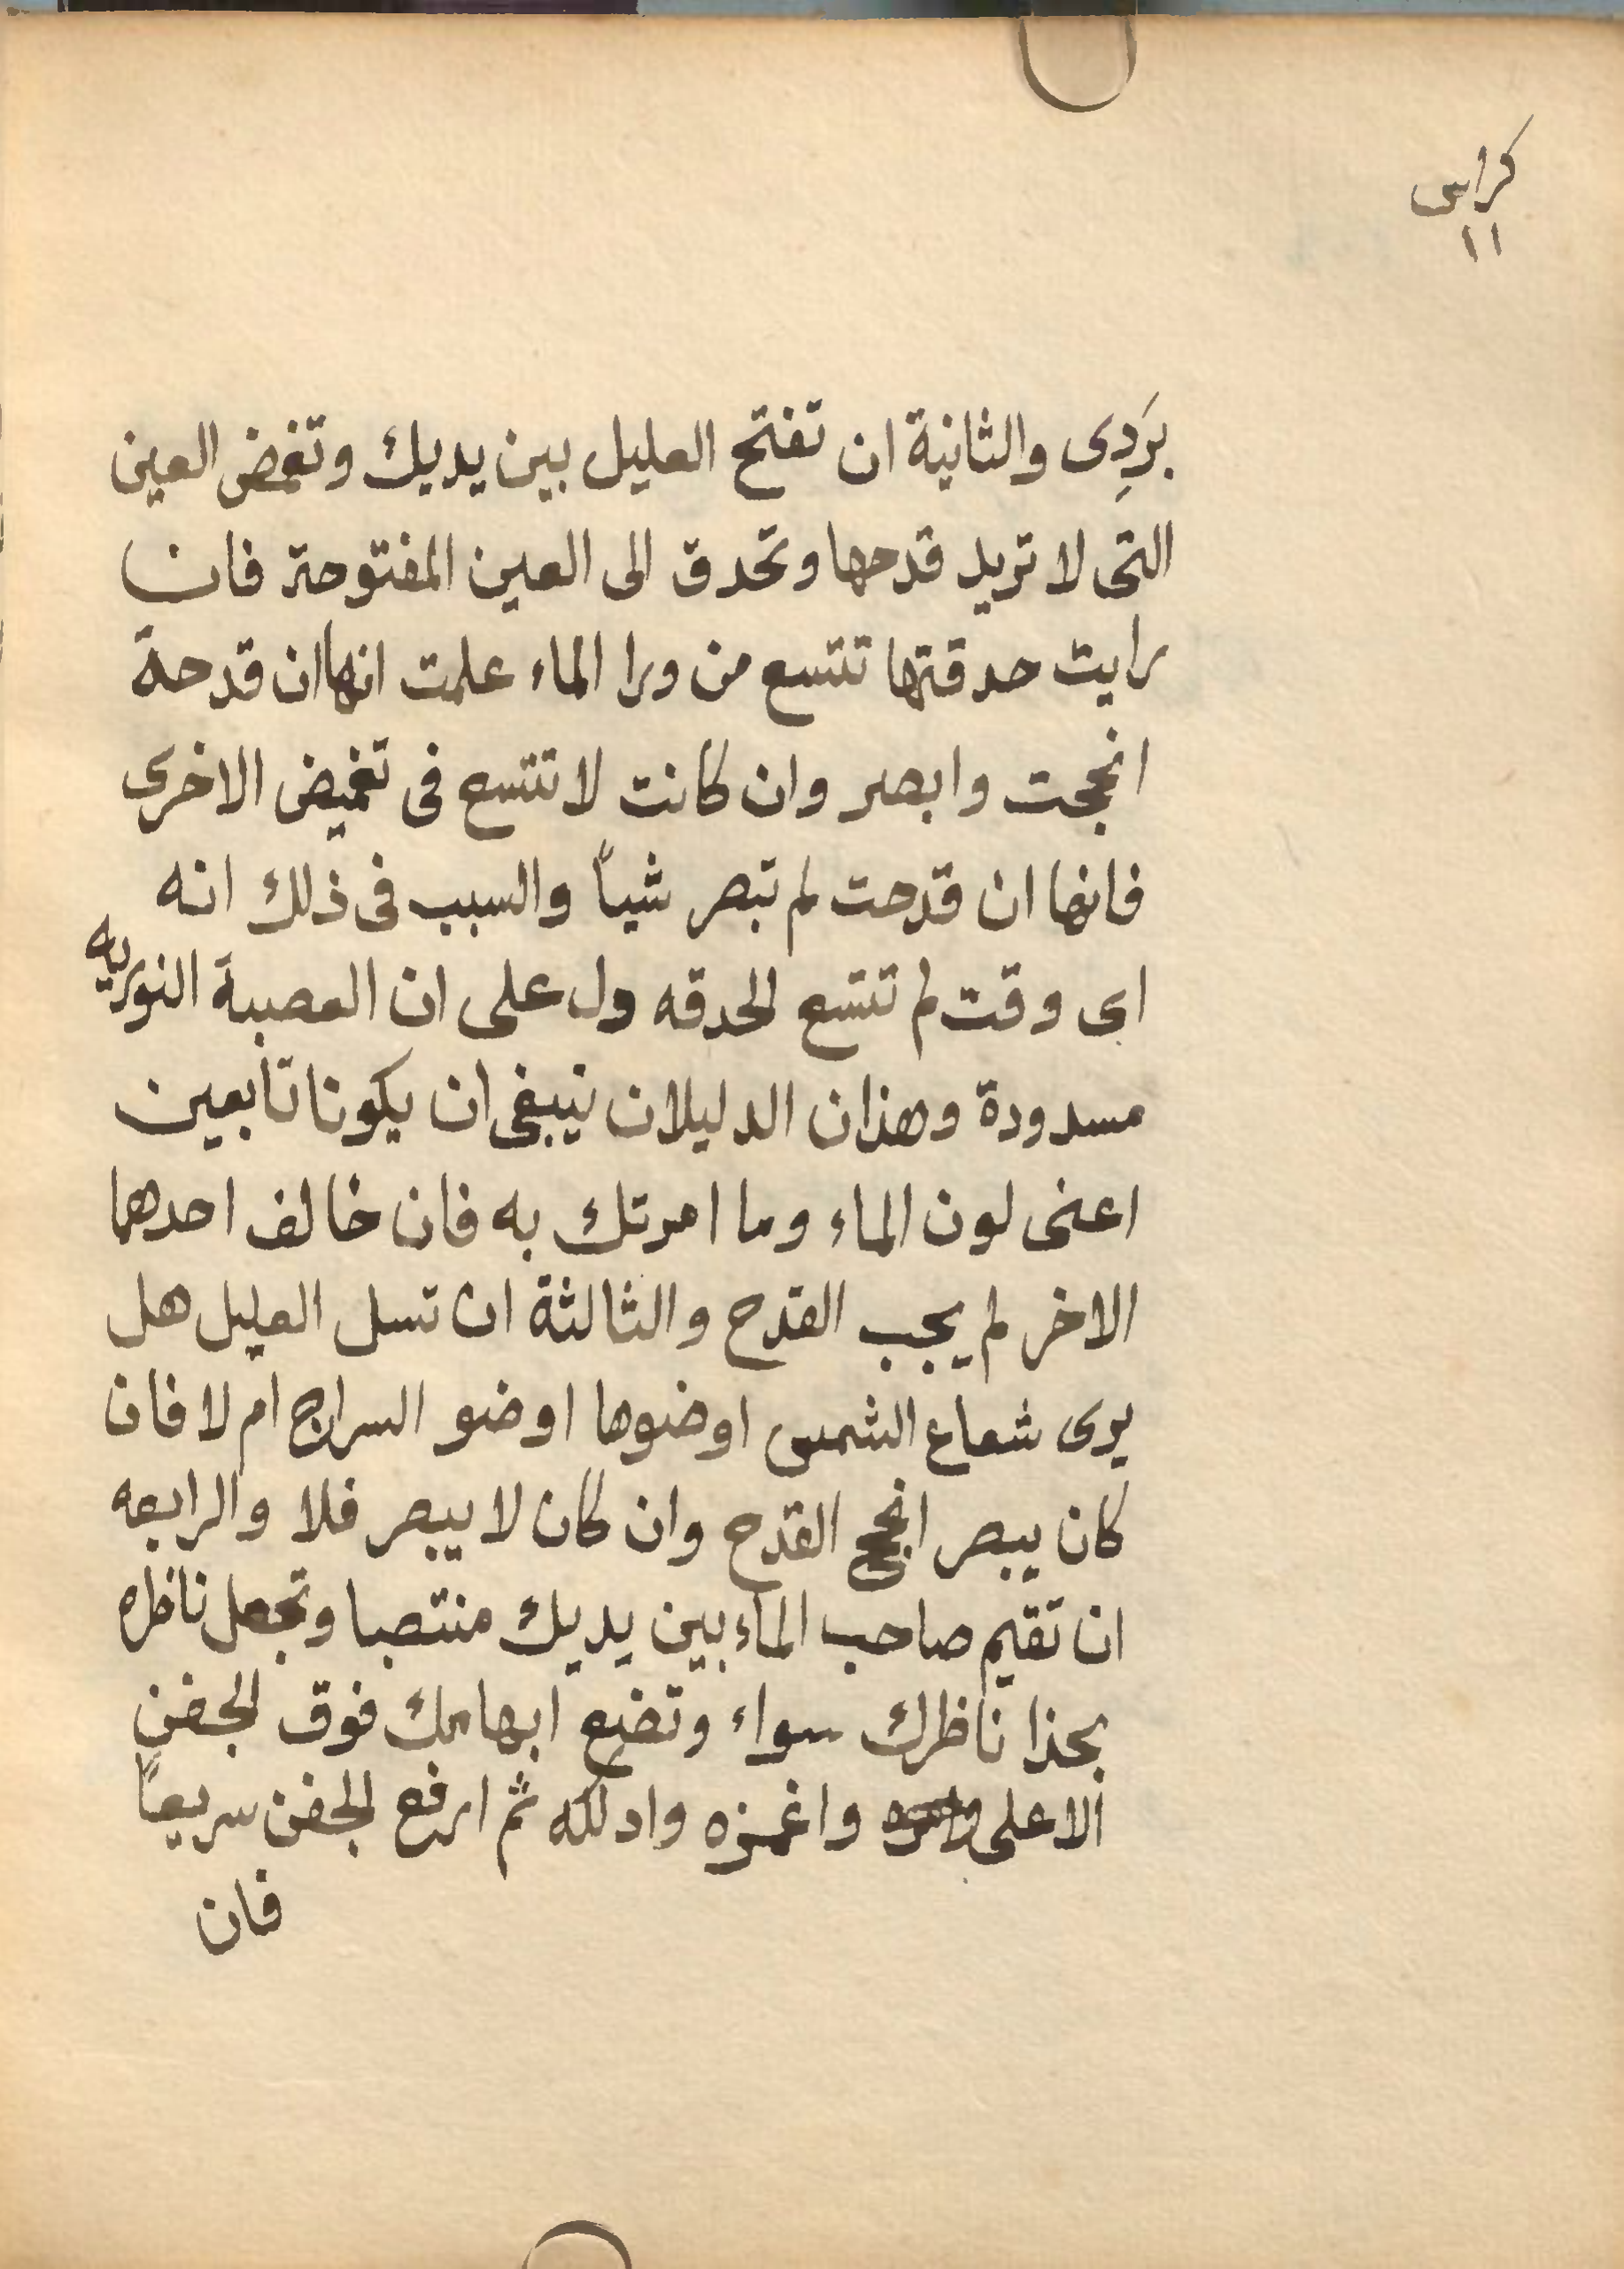 كراس
١١
بَردِى والثانية ان تفتح العليل بين يديك وتغمض العين
التى لا تريد قدحها وتحدق الى العين المفتوحة فان
رايت حدقتها تتسع من ورا الماء علمت انها ان قدحة
انجحت وابصر وان كانت لا تتسع فى تغميض الاخرى
فانها ان قدحت لم تبصر شياً والسبب فى ذلك انه
اى وقت لم تتسع الحدقه دل على ان العصبة النوريه
مسدودة وهذان الدليلان ينبغى ان يكونا تابعين
اعنى لون الماء وما امرتك به فان خالف احدهما
الاخر لم يجب القدح والثالثة ان تسل العليل هل
يرى شعاع الشمس اوضوها اوضو السراج ام لا فان
كان يبصر انجح القدح وان كان لا يبصر فلا والرابعه
ان تقيم صاحب الماء بين يديك منتصبا وتجعل ناظره
بحذا ناظرك سواء وتضع ابهامك فوق الجفن
الاعلى واغمزه وادلكه ثم ارفع الجفن سريعاً
فان